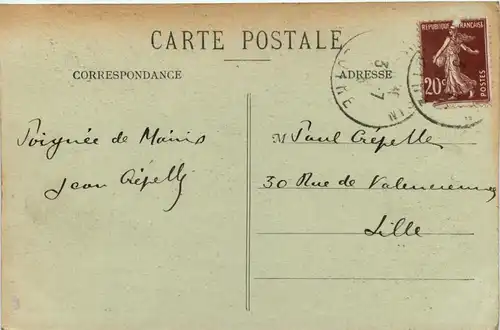 CARTE POSTALE
CORRESPONDANCE
ADRESSE
REPUBLIQUE FRANÇAISE
20c
POSTES
Poignée de Mains
Jean Crépelle
M Paul Crépelle
30 Rue de Valenciennes
Lille